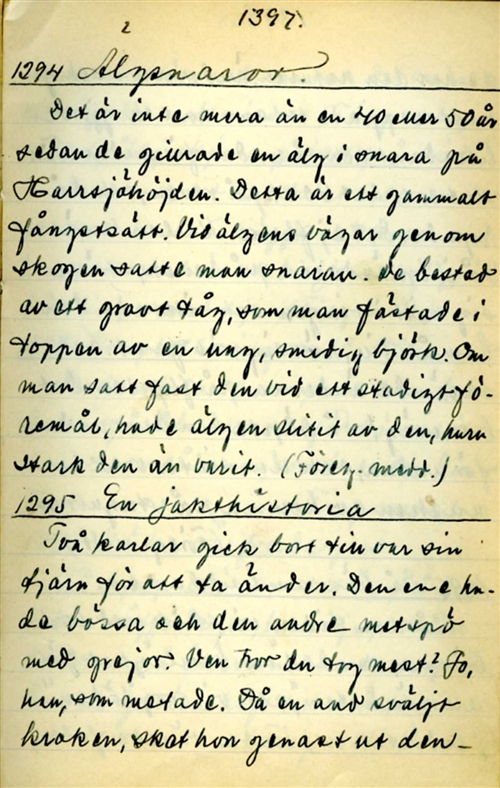 2
1397.
1294 Älgsnaror.
Det är inte mera än en 40 eller 50 år
sedan de gillrade en älg i snara på
Harrsjöhöjden. Detta är ett gammalt
fångstsätt. Vid älgens vägar genom
skogen satte man snaran. De bestod
av ett grovt tåg, som man fästade i
toppen av en ung, smidig björk. Om
man satt fast den vid ett stadigt fö-
remål, hade älgen slitit av den, huru
stark den än varit. (Föreg. medd.)
1295 En jakthistoria
Två karlar gick bort till var sin
tjärn för att ta änder. Den ene ha-
de bössa och den andre metspö
med grejor. Ven tror du tog mest? Jo,
han, som metade. Då en and sväljt
kroken, sköt hon genast ut den